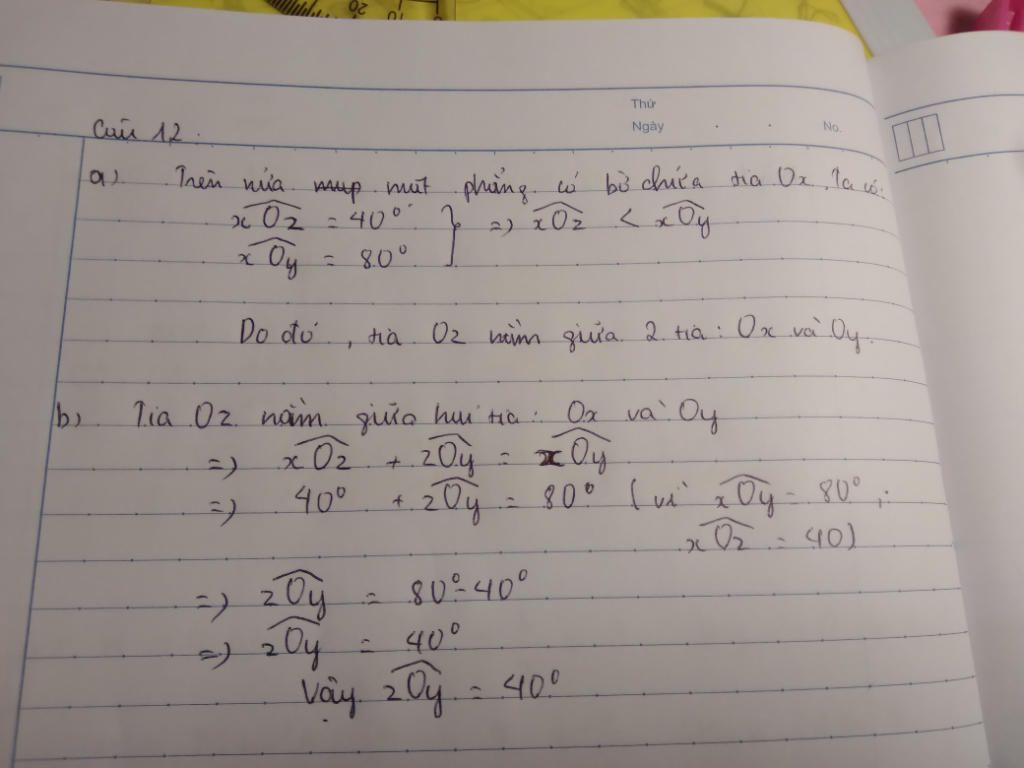 20 10 0
Thứ
Ngày . . No.
Câu 12.
a) Trên nửa mặt phẳng có bờ chứa tia Ox, ta có:
xOz = 40° } => xOz < xOy
xOy = 80°
Do đó, tia Oz nằm giữa 2 tia: Ox và Oy.
b) Tia Oz nằm giữa hai tia: Ox và Oy
=> xOz + zOy = xOy
=> 40° + zOy = 80° (vì xOy = 80°;
xOz = 40)
=> zOy = 80° - 40°
=> zOy = 40°
Vậy zOy = 40°